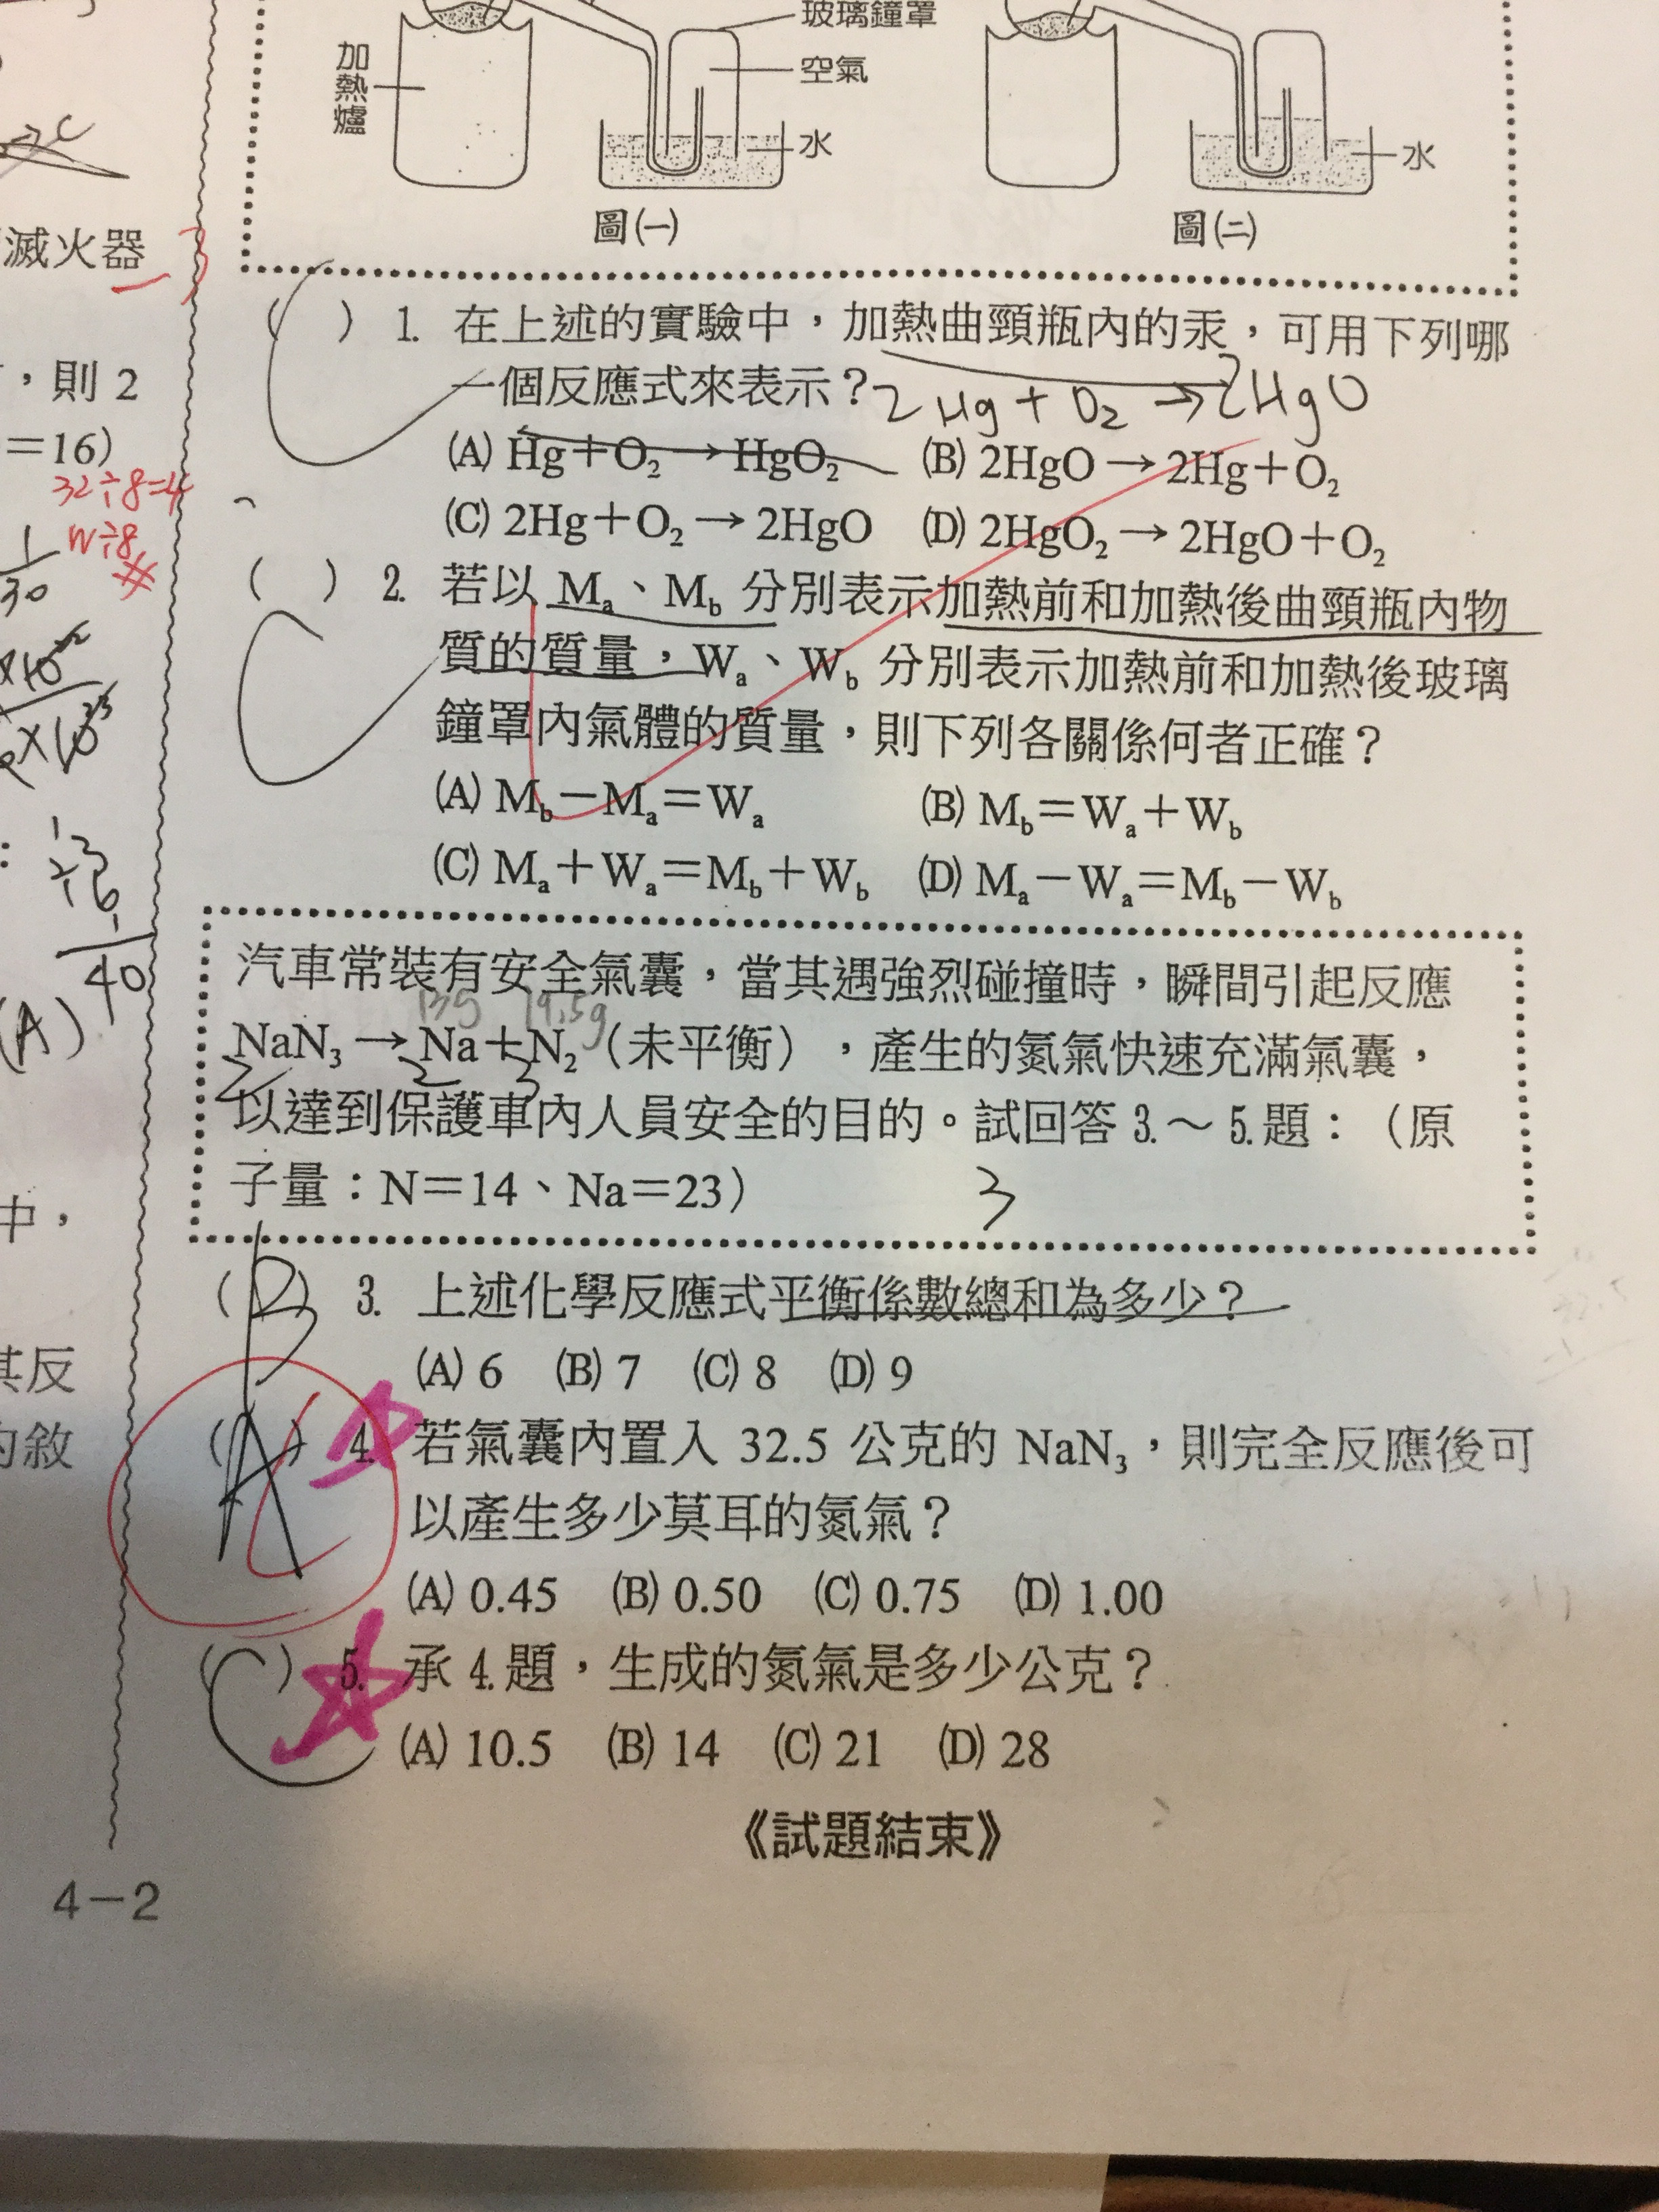 玻璃鐘罩
加熱爐
空氣
水
水
圖㈠
圖㈡
→C
滅火器
,則 2
=16)
32÷8=4
W÷8
#
1
30
40
(A)
中,
其反
的敘
( ) 1. 在上述的實驗中,加熱曲頸瓶內的汞,可用下列哪
一個反應式來表示?2Hg+O₂→2HgO
(A) Hg+O₂→HgO₂ (B) 2HgO→2Hg+O₂
(C) 2Hg+O₂→2HgO (D) 2HgO₂→2HgO+O₂
( ) 2. 若以 Mₐ、M_b 分別表示加熱前和加熱後曲頸瓶內物
質的質量,Wₐ、W_b 分別表示加熱前和加熱後玻璃
鐘罩內氣體的質量,則下列各關係何者正確?
(A) M_b-Mₐ=Wₐ (B) M_b=Wₐ+W_b
(C) Mₐ+Wₐ=M_b+W_b (D) Mₐ-Wₐ=M_b-W_b
汽車常裝有安全氣囊,當其遇強烈碰撞時,瞬間引起反應
13g 19.5g
NaN₃→Na+N₂(未平衡),產生的氮氣快速充滿氣囊,
2 2 3
以達到保護車內人員安全的目的。試回答 3.~ 5.題:(原
子量:N=14、Na=23)
3
(B) 3. 上述化學反應式平衡係數總和為多少?
(A) 6 (B) 7 (C) 8 (D) 9
(A) 4. 若氣囊內置入 32.5 公克的 NaN₃,則完全反應後可
以產生多少莫耳的氮氣?
(A) 0.45 (B) 0.50 (C) 0.75 (D) 1.00
(C) 5. 承 4.題,生成的氮氣是多少公克?
(A) 10.5 (B) 14 (C) 21 (D) 28
《試題結束》
4-2